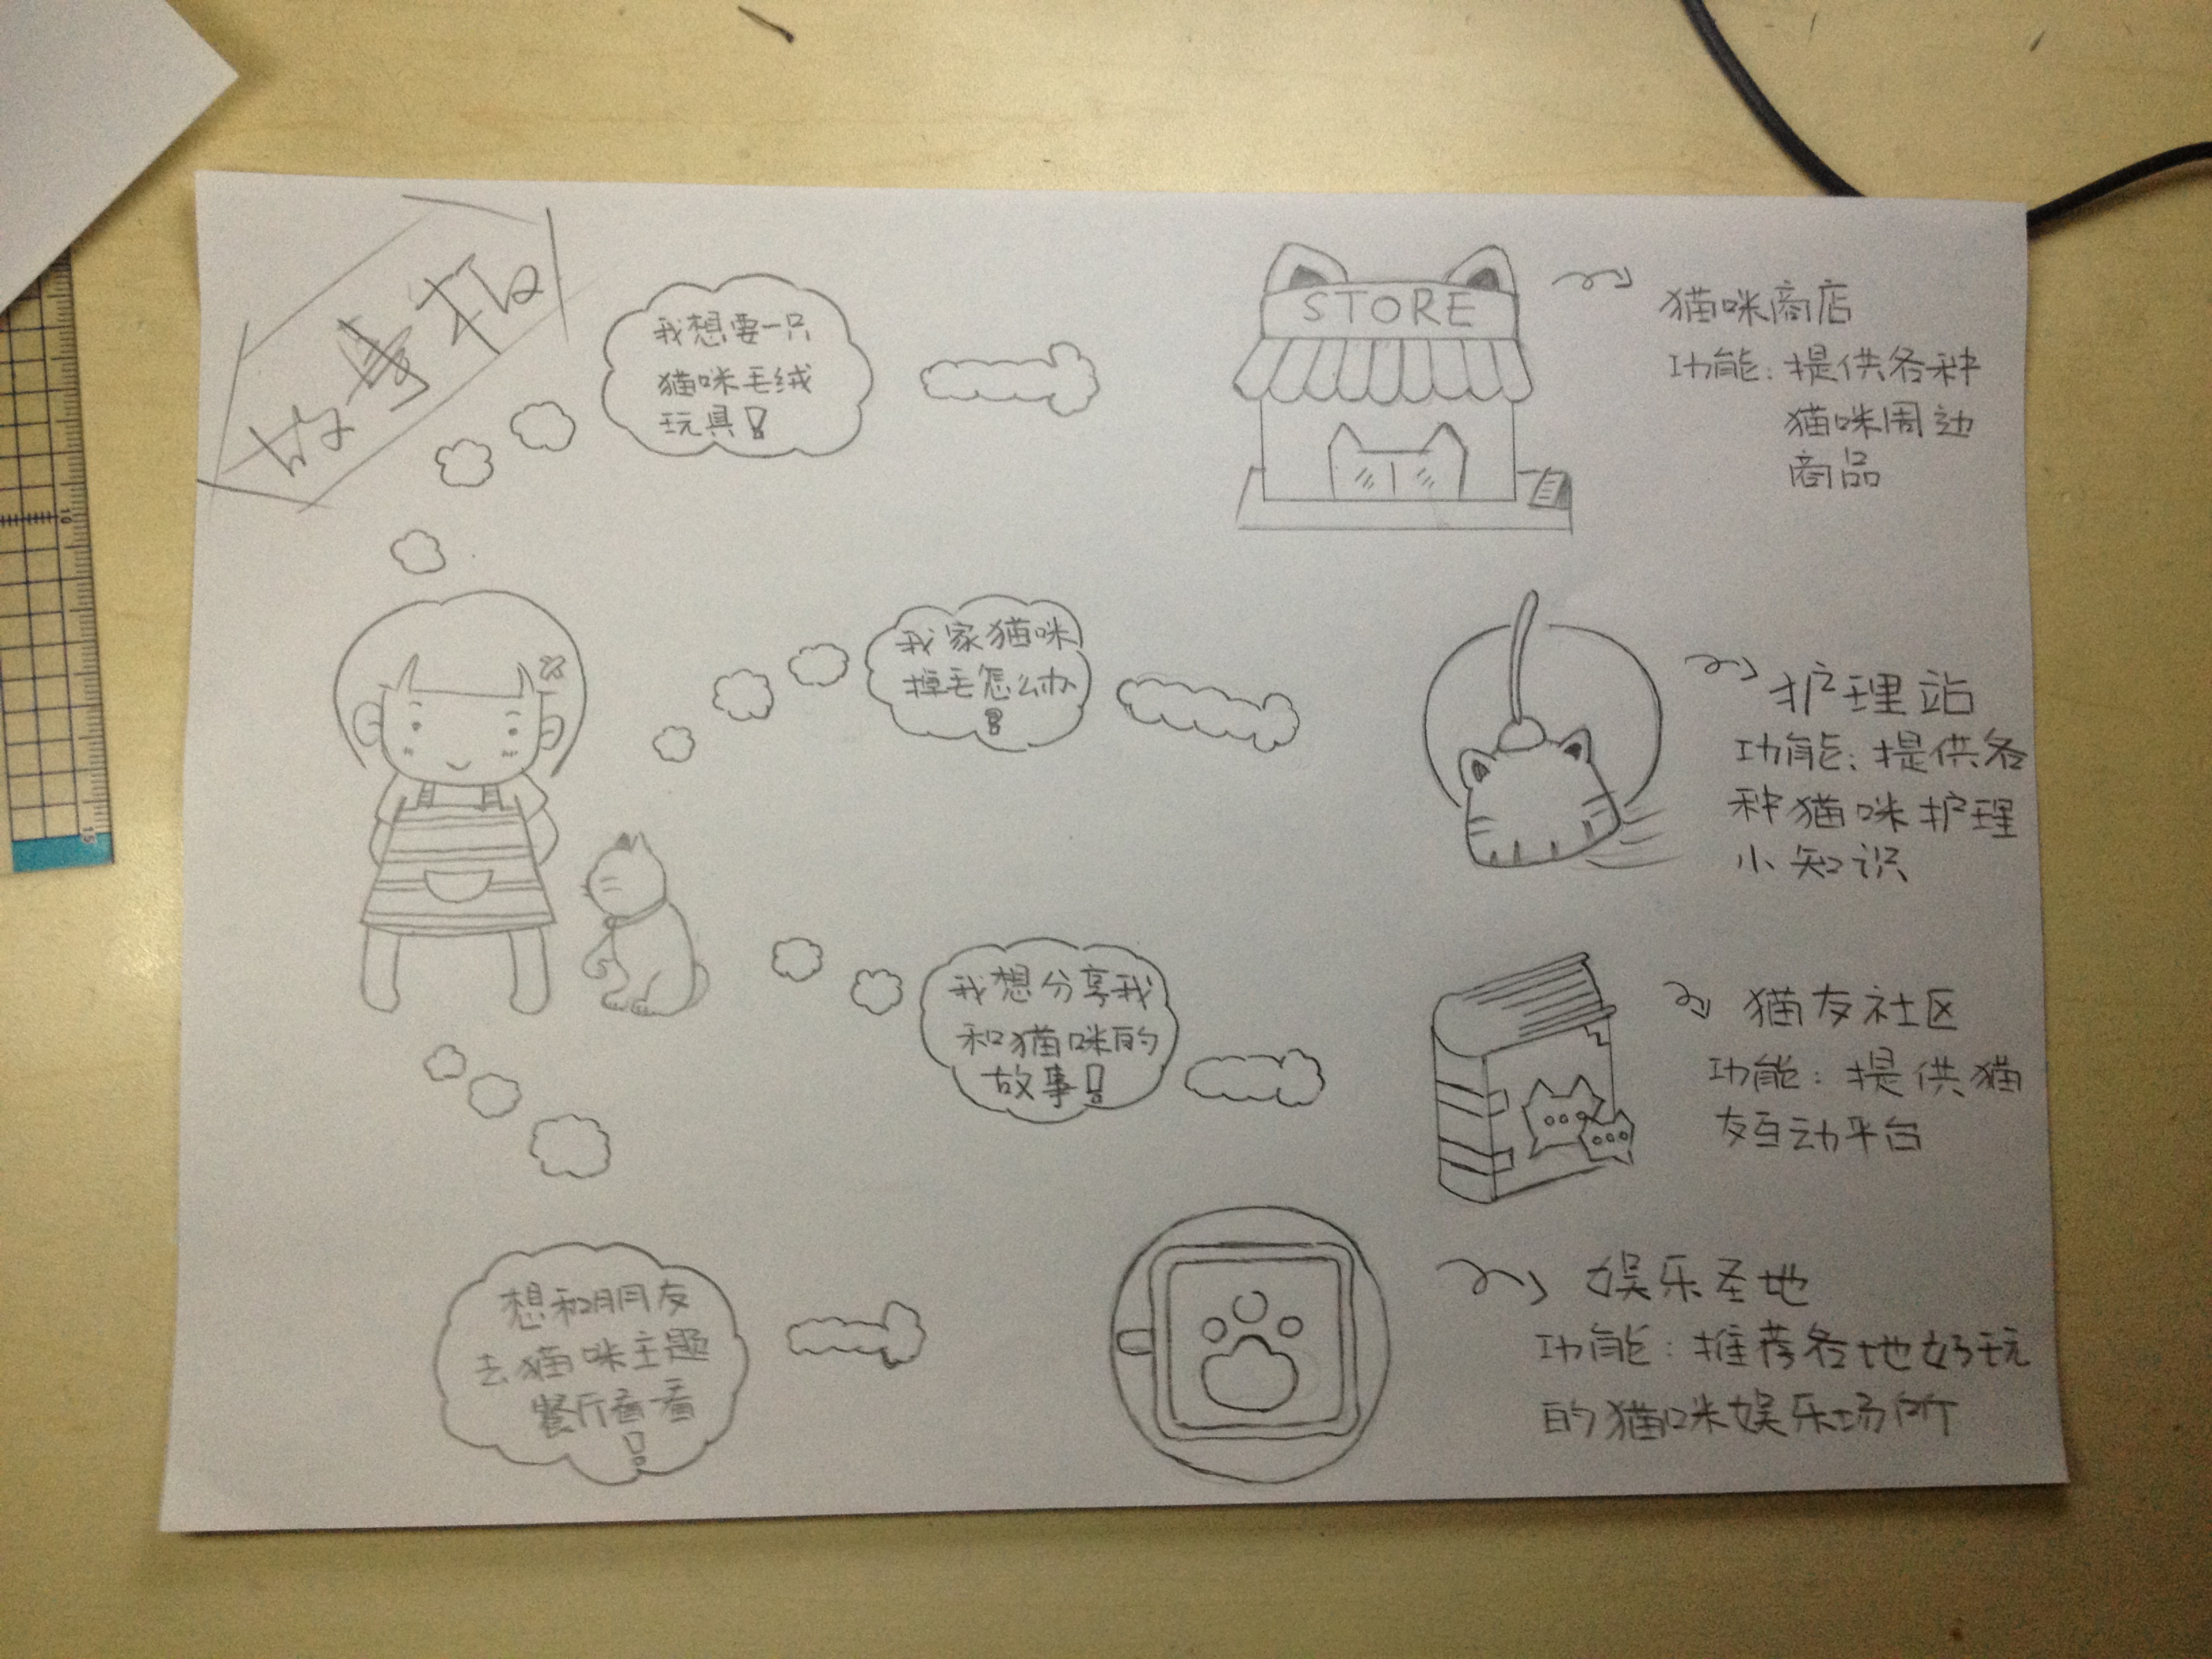 故事板
我想要一只
猫咪毛绒
玩具!
STORE
猫咪商店
功能:提供各种
猫咪周边
商品
我家猫咪
掉毛怎么办
护理站
功能:提供各
种猫咪护理
小知识
我想分享我
和猫咪的
故事!
猫友社区
功能:提供猫
友互动平台
想和朋友
去猫咪主题
餐厅看看
!
娱乐圣地
功能:推荐各地好玩
的猫咪娱乐场所
10
15